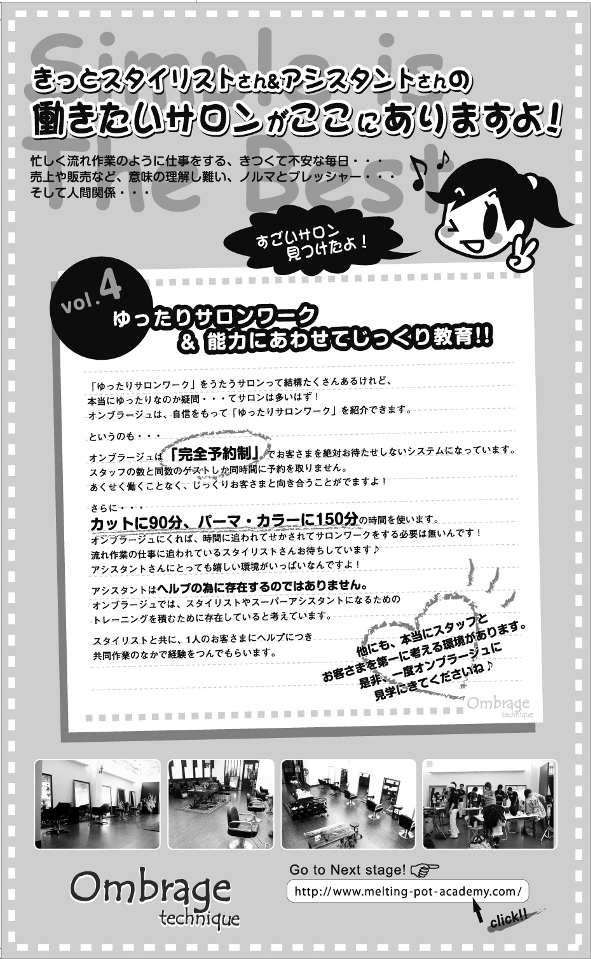 Simple is
The Best
きっとスタイリストさん&アシスタントさんの
働きたいサロンがここにありますよ!
忙しく流れ作業のように仕事をする、きつくて不安な毎日・・・
売上や販売など、意味の理解し難い、ノルマとプレッシャー・・・
そして人間関係・・・
すごいサロン
見つけたよ!
vol.4
ゆったりサロンワーク
& 能力にあわせてじっくり教育!!
「ゆったりサロンワーク」をうたうサロンって結構たくさんあるけれど、
本当にゆったりなのか疑問・・・てサロンは多いはず!
オンブラージュは、自信をもって「ゆったりサロンワーク」を紹介できます。
というのも・・・
オンブラージュは「完全予約制」でお客さまを絶対お待たせしないシステムになっています。
スタッフの数と同数のゲストしか同時間に予約を取りません。
あくせく働くことなく、じっくりお客さまと向き合うことができますよ!
さらに・・・
カットに90分、パーマ・カラーに150分の時間を使います。
オンブラージュにくれば、時間に追われてせかされてサロンワークをする必要は無いんです!
流れ作業の仕事に追われているスタイリストさんお待ちしています♪
アシスタントさんにとっても嬉しい環境がいっぱいなんですよ!
アシスタントはヘルプの為に存在するのではありません。
オンブラージュでは、スタイリストやスーパーアシスタントになるための
トレーニングを積むために存在していると考えています。
スタイリストと共に、1人のお客さまにヘルプにつき
共同作業のなかで経験をつんでもらいます。
他にも、本当にスタッフと
お客さまを第一に考える環境があります。
是非、一度オンブラージュに
見学にきてくださいね♪
Ombrage
technique
Ombrage
technique
Go to Next stage!
http://www.melting-pot-academy.com/
click!!